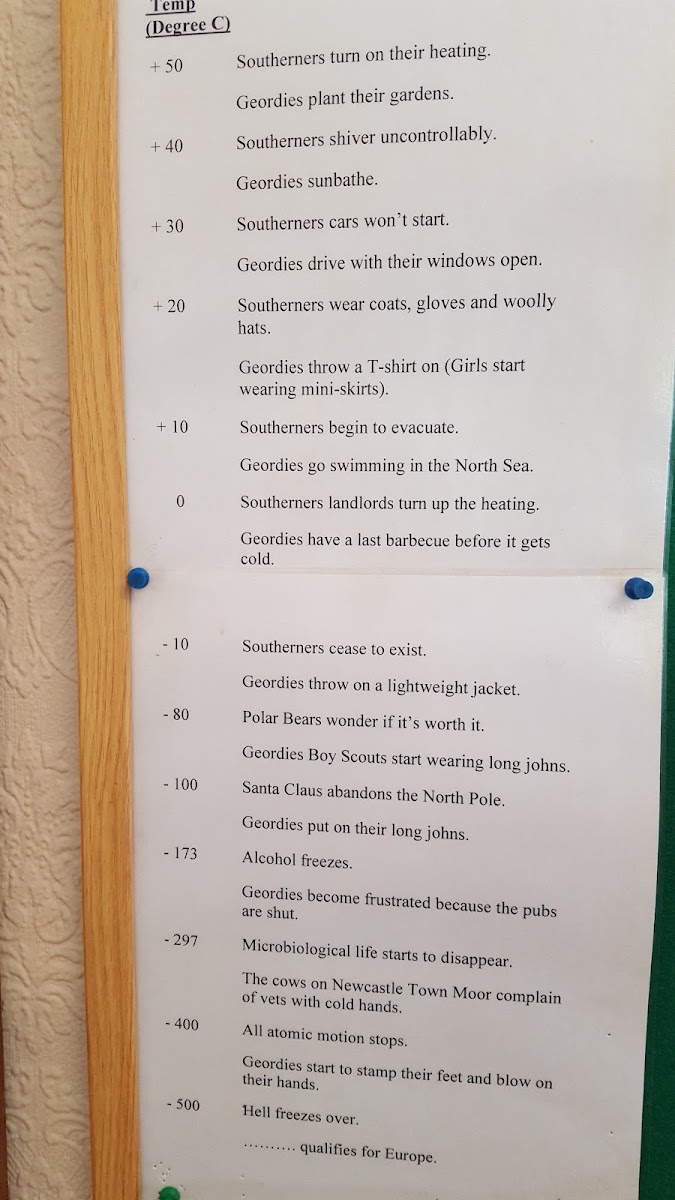 Temp
(Degree C)
+ 50 Southerners turn on their heating.
Geordies plant their gardens.
+ 40 Southerners shiver uncontrollably.
Geordies sunbathe.
+ 30 Southerners cars won't start.
Geordies drive with their windows open.
+ 20 Southerners wear coats, gloves and woolly
hats.
Geordies throw a T-shirt on (Girls start
wearing mini-skirts).
+ 10 Southerners begin to evacuate.
Geordies go swimming in the North Sea.
0 Southerners landlords turn up the heating.
Geordies have a last barbecue before it gets
cold.
- 10 Southerners cease to exist.
Geordies throw on a lightweight jacket.
- 80 Polar Bears wonder if it's worth it.
Geordies Boy Scouts start wearing long johns.
- 100 Santa Claus abandons the North Pole.
Geordies put on their long johns.
- 173 Alcohol freezes.
Geordies become frustrated because the pubs
are shut.
- 297 Microbiological life starts to disappear.
The cows on Newcastle Town Moor complain
of vets with cold hands.
- 400 All atomic motion stops.
Geordies start to stamp their feet and blow on
their hands.
- 500 Hell freezes over.
.......... qualifies for Europe.